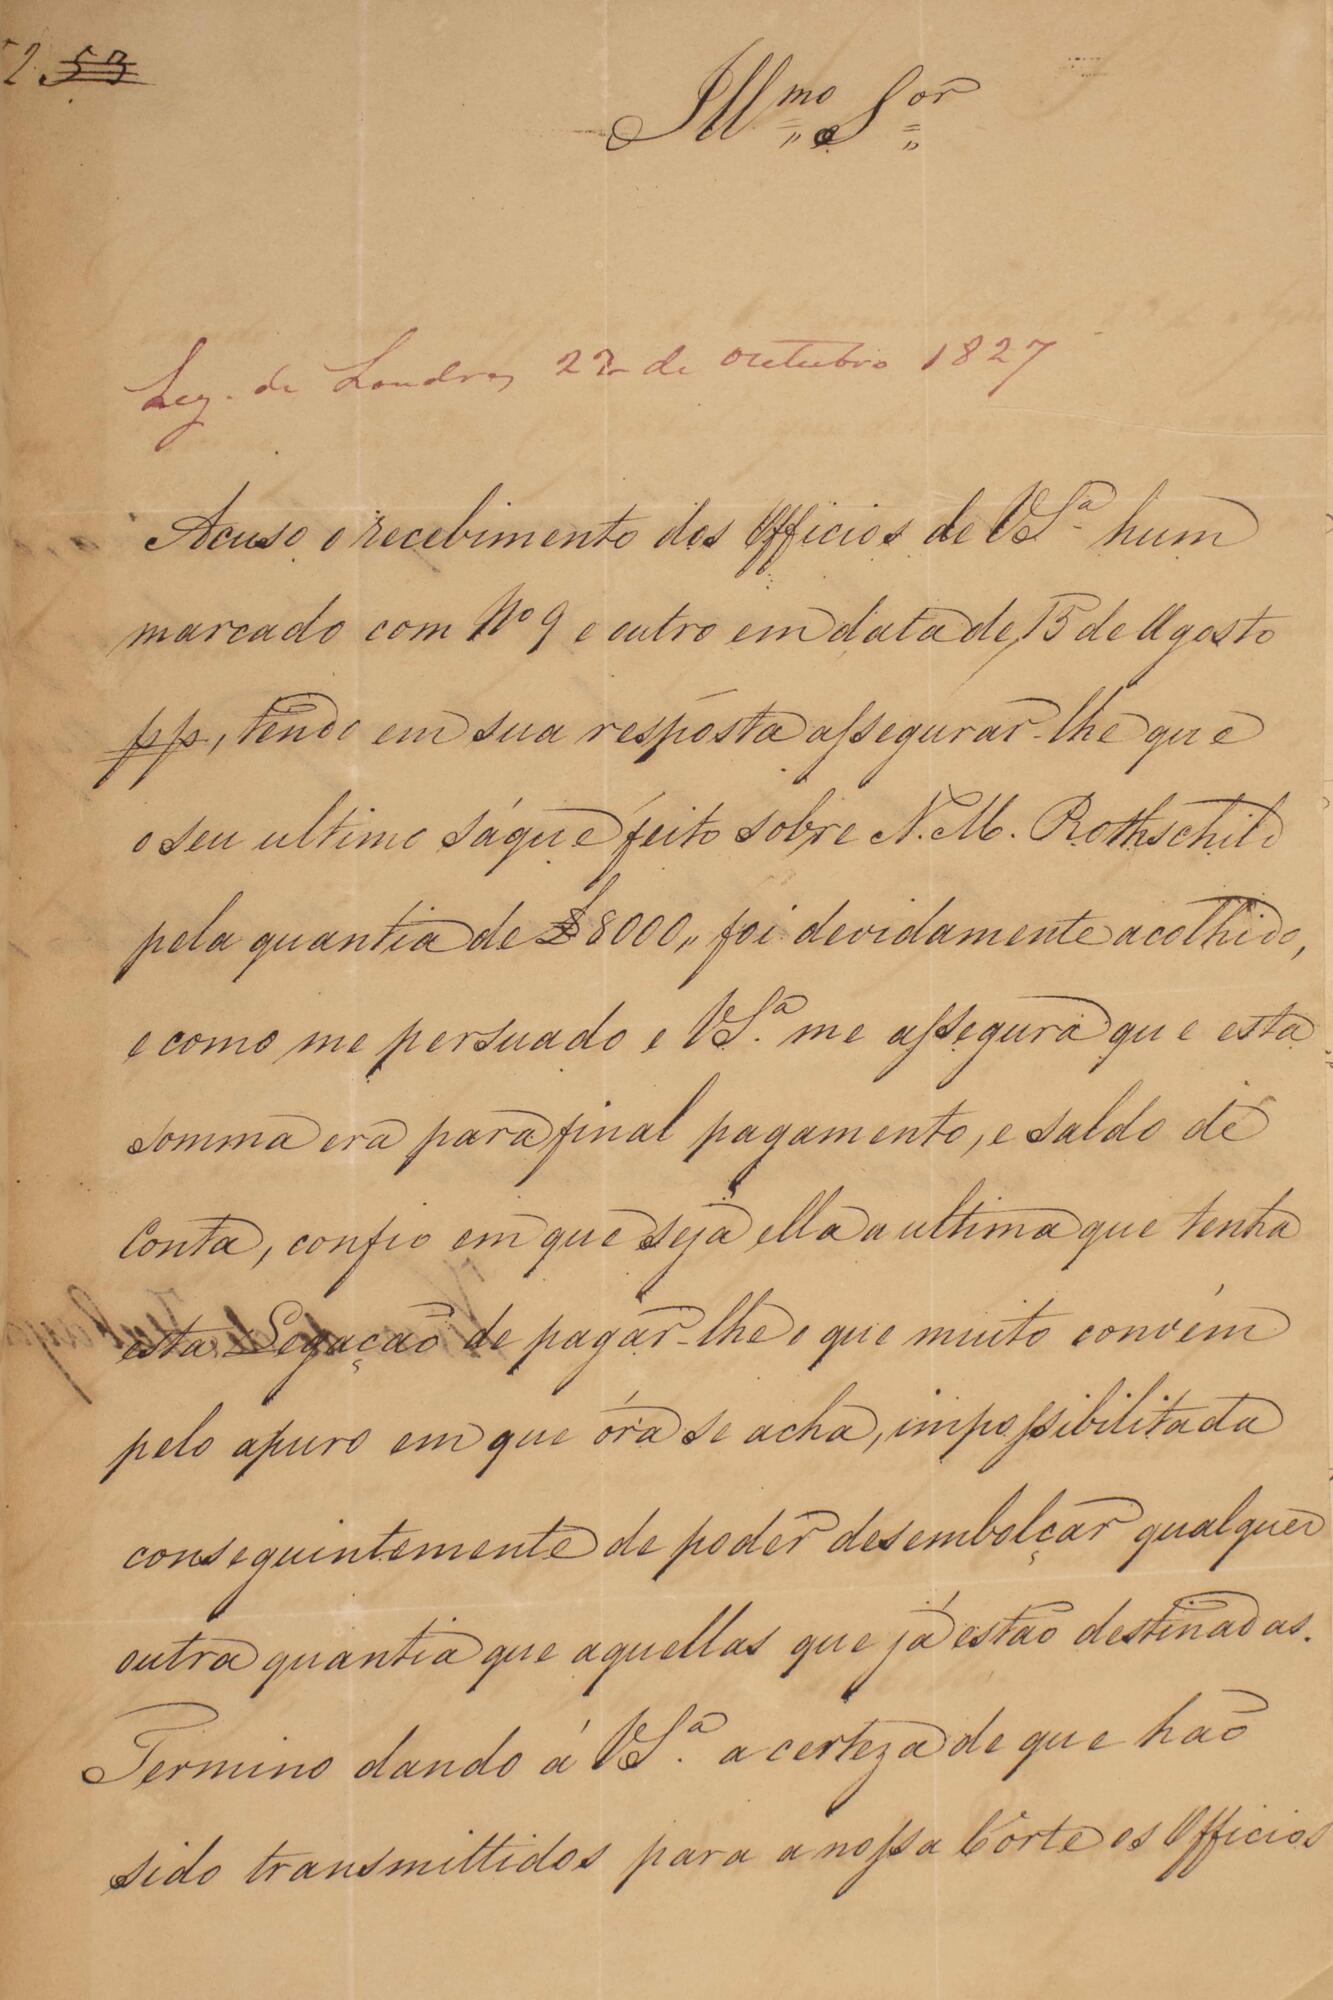 52 53
Ill.mo Sor
Leg. de Londres 22 de outubro 1827
Acuso o recebimento dos Officios de VS.a hum
marcado com No 9 e outro em data de 15 de Agosto
pp, tendo em sua resposta assegurar-lhe que
o seu ultimo sáque feito sobre N. M. Rothschild
pela quantia de £8000,, foi devidamente acolhido,
e como me persuado e VS.a me assegura que esta
somma era para final pagamento, e saldo de
Conta, confio em que seja ella a ultima que tenha
esta Legação de pagar-lhe o que muito convém
pelo apuro em que óra se acha, impossibilitada
conseguintemente de poder desembolçar qualquer
outra quantia que aquellas que já estão destinadas.
Termino dando á VS.a a certeza de que hão
sido transmittidos para a nossa Côrte os Officios